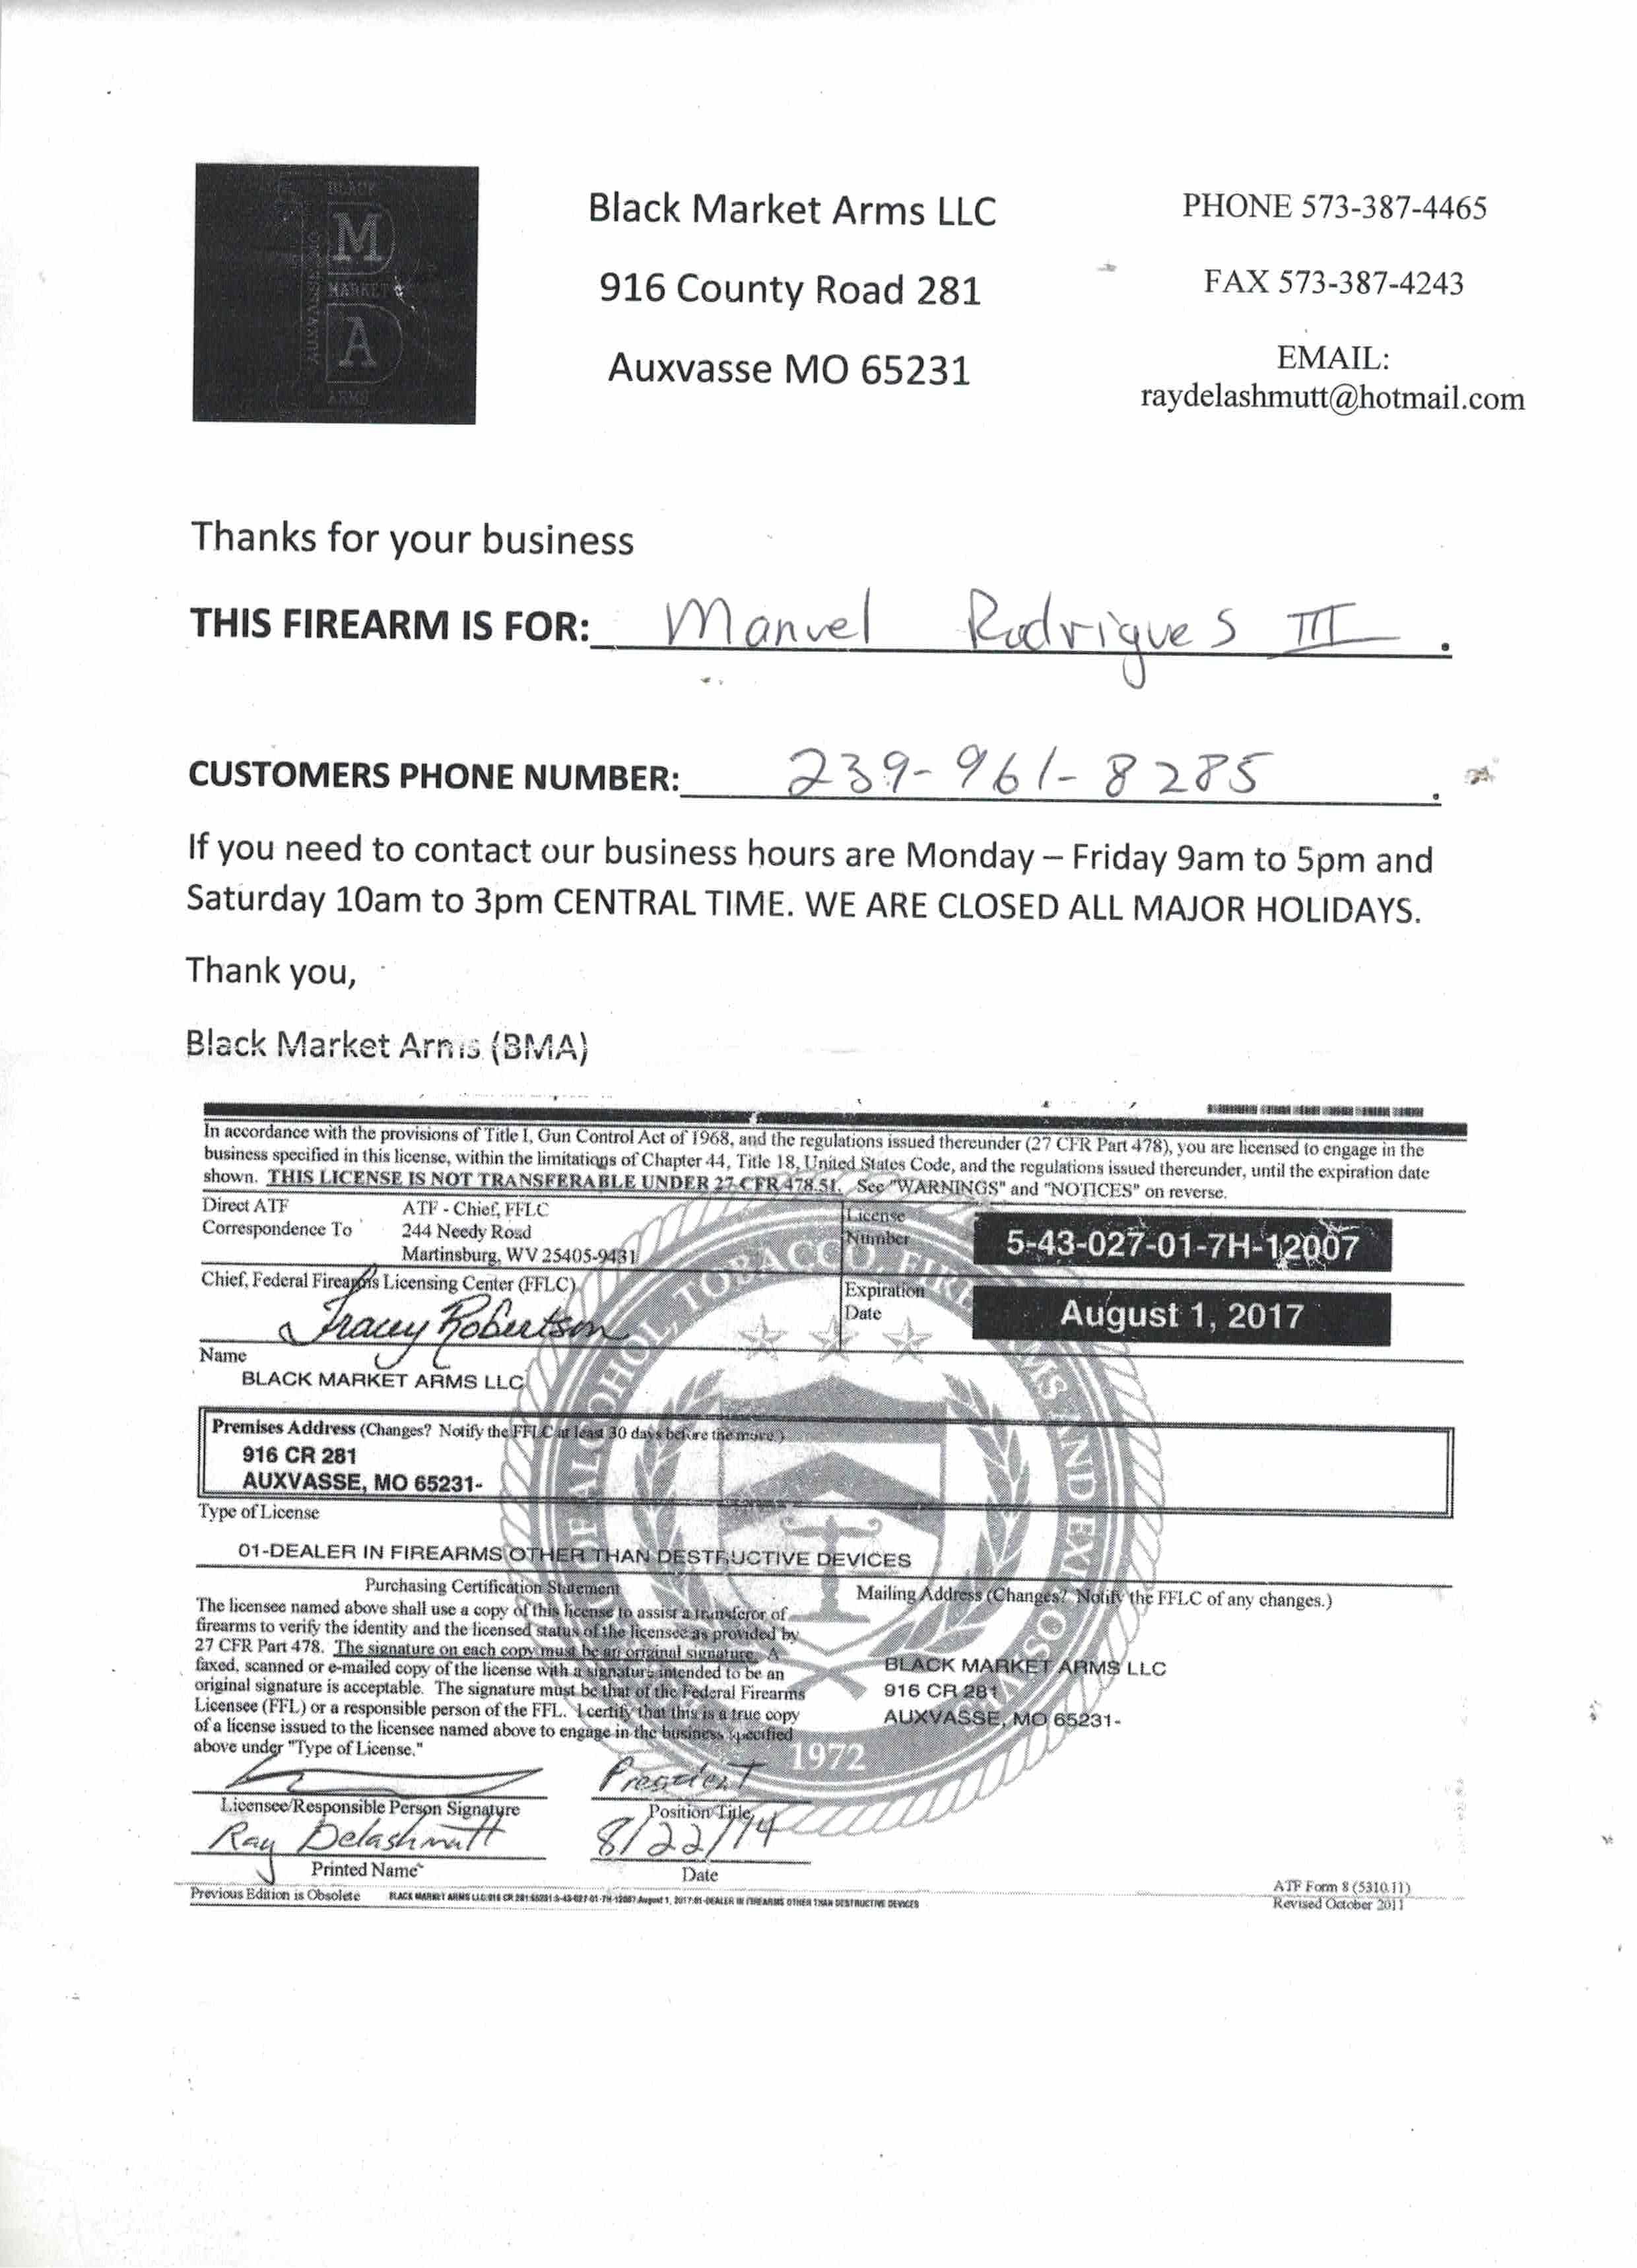 BLACK
M
MARKET
A
ARMS
AUXVASSE MO
Black Market Arms LLC
916 County Road 281
Auxvasse MO 65231
PHONE 573-387-4465
FAX 573-387-4243
EMAIL:
raydelashmutt@hotmail.com
Thanks for your business
THIS FIREARM IS FOR: Manuel Rodrigues III.
CUSTOMERS PHONE NUMBER: 239-961-8285.
If you need to contact our business hours are Monday – Friday 9am to 5pm and
Saturday 10am to 3pm CENTRAL TIME. WE ARE CLOSED ALL MAJOR HOLIDAYS.
Thank you,
Black Market Arms (BMA)
In accordance with the provisions of Title I, Gun Control Act of 1968, and the regulations issued thereunder (27 CFR Part 478), you are licensed to engage in the
business specified in this license, within the limitations of Chapter 44, Title 18, United States Code, and the regulations issued thereunder, until the expiration date
shown. THIS LICENSE IS NOT TRANSFERABLE UNDER 27 CFR 478.51. See "WARNINGS" and "NOTICES" on reverse.
Direct ATF
Correspondence To
ATF - Chief, FFLC
244 Needy Road
Martinsburg, WV 25405-9431
License
Number
5-43-027-01-7H-12007
Chief, Federal Firearms Licensing Center (FFLC)
Tracey Robertson
Expiration
Date
August 1, 2017
Name
BLACK MARKET ARMS LLC
Premises Address (Changes? Notify the FFLC at least 30 days before the move.)
916 CR 281
AUXVASSE, MO 65231-
Type of License
01-DEALER IN FIREARMS OTHER THAN DESTRUCTIVE DEVICES
Purchasing Certification Statement
The licensee named above shall use a copy of this license to assist a transferor of
firearms to verify the identity and the licensed status of the licensee as provided by
27 CFR Part 478. The signature on each copy must be an original signature. A
faxed, scanned or e-mailed copy of the license with a signature intended to be an
original signature is acceptable. The signature must be that of the Federal Firearms
Licensee (FFL) or a responsible person of the FFL. I certify that this is a true copy
of a license issued to the licensee named above to engage in the business specified
above under "Type of License."
Mailing Address (Changes? Notify the FFLC of any changes.)
BLACK MARKET ARMS LLC
916 CR 281
AUXVASSE, MO 65231-
1972
President
Licensee/Responsible Person Signature
Position/Title
Ray Delashmutt
8/22/14
Printed Name
Date
Previous Edition is Obsolete
BLACK MARKET ARMS LLC:916 CR 281:65231:5-43-027-01-7H-12007:August 1, 2017:01-DEALER IN FIREARMS OTHER THAN DESTRUCTIVE DEVICES
ATF Form 8 (5310.11)
Revised October 2011